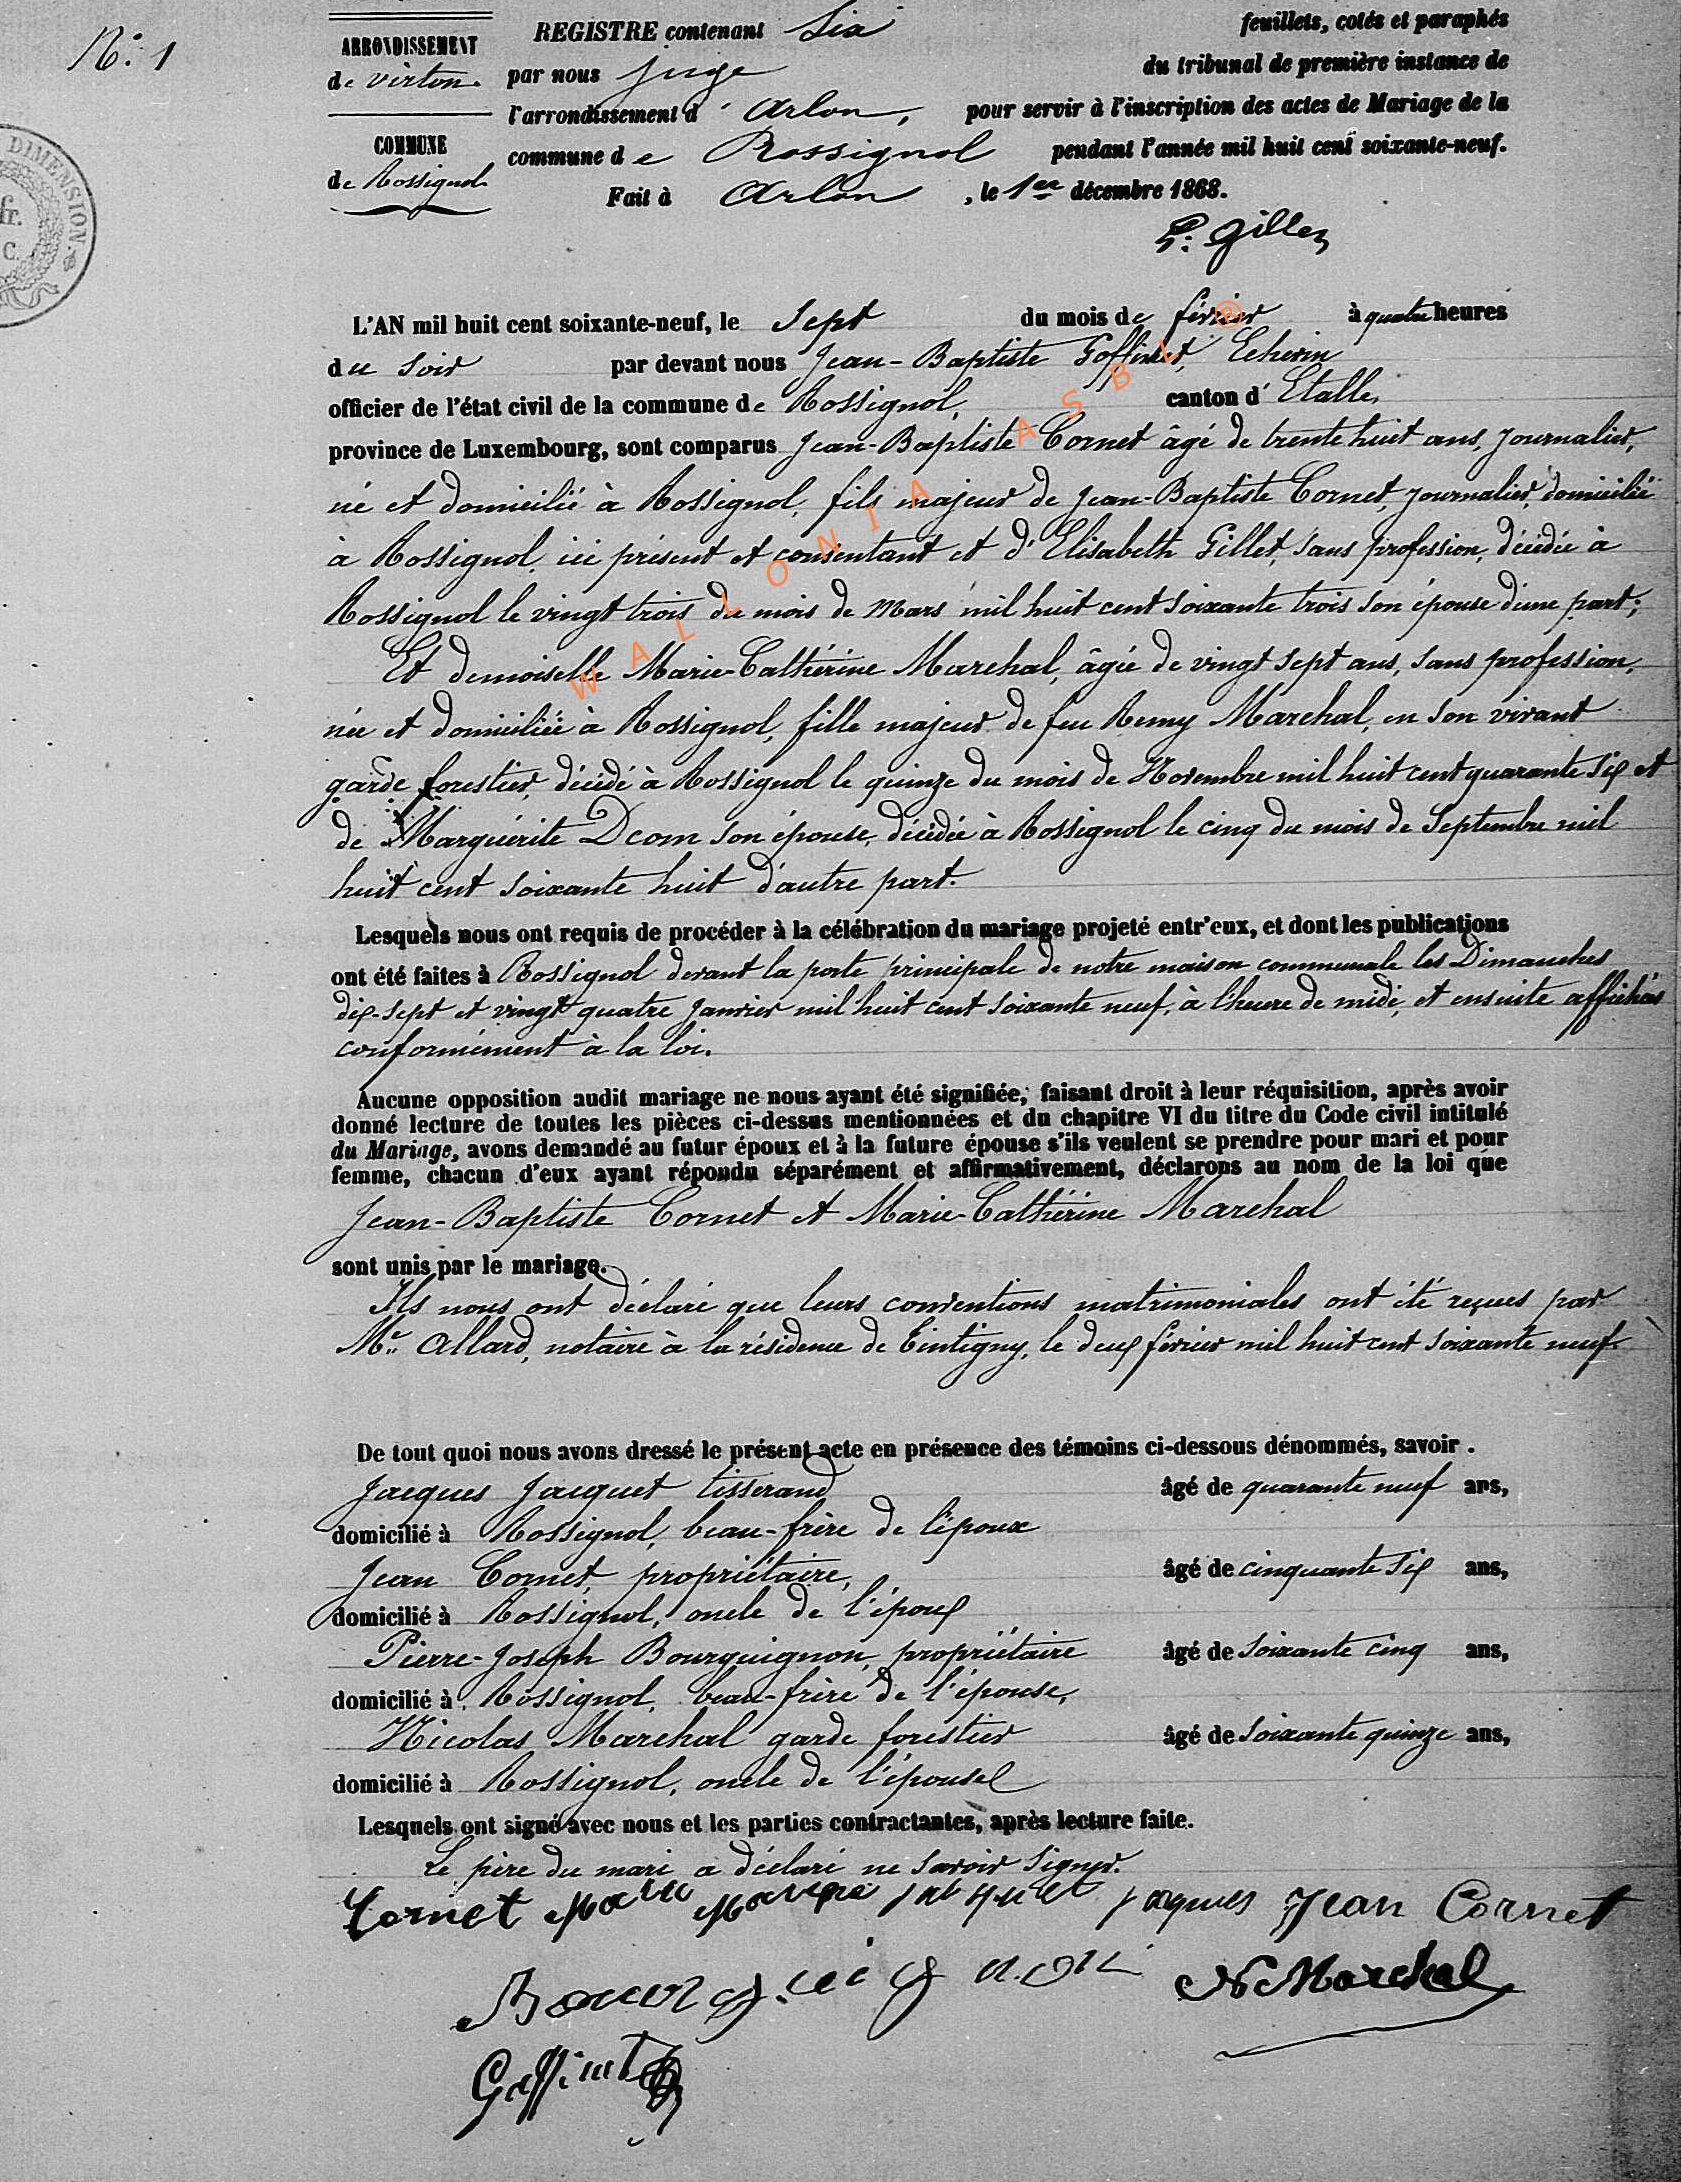 N.° 1
DIMENSION.
fr.
C.
ARRONDISSEMENT
de virton.
COMMUNE
de Rossignol.
REGISTRE contenant Six feuillets, cotés et paraphés
par nous juge du tribunal de première instance de
l'arrondissement d' Arlon, pour servir à l'inscription des actes de Mariage de la
commune de Rossignol pendant l'année mil huit cent soixante-neuf.
Fait à Arlon, le 1er décembre 1868.
L'AN mil huit cent soixante-neuf, le Sept du mois de février à quatre heures
du soir par devant nous Jean-Baptiste Goffinet, Echevin
officier de l'état civil de la commune de Rossignol, canton d' Etalle,
province de Luxembourg, sont comparus Jean-Baptiste Cornet âgé de trente huit ans, journalier,
né et domicilié à Rossignol, fils majeur de Jean-Baptiste Cornet, journalier, domicilié
à Rossignol, ici présent et consentant et d'Elisabeth Gillet, sans profession, décédée à
Rossignol le vingt trois du mois de Mars mil huit cent soixante trois son épouse d'une part;
Et demoiselle Marie-Cathérine Marchal, âgée de vingt sept ans, sans profession,
née et domiciliée à Rossignol, fille majeur de feu Remy Marchal, en son vivant
garde forestier, décédé à Rossignol le quinze du mois de Novembre mil huit cent quarante six et
de Marguérite Dcom son épouse, décédée à Rossignol le cinq du mois de Septembre mil
huit cent soixante huit d'autre part.
Lesquels nous ont requis de procéder à la célébration du mariage projeté entr'eux, et dont les publications
ont été faites à Rossignol devant la porte principale de notre maison communale les Dimanches
dix-sept et vingt quatre Janvier mil huit cent soixante neuf, à l'heure de midi, et ensuite affichés
conformément à la loi.
Aucune opposition audit mariage ne nous ayant été signifiée, faisant droit à leur réquisition, après avoir
donné lecture de toutes les pièces ci-dessus mentionnées et du chapitre VI du titre du Code civil intitulé
du Mariage, avons demandé au futur époux et à la future épouse s'ils veulent se prendre pour mari et pour
femme, chacun d'eux ayant répondu séparément et affirmativement, déclarons au nom de la loi que
Jean-Baptiste Cornet et Marie-Cathérine Marchal
sont unis par le mariage.
Ils nous ont déclaré que leurs conventions matrimoniales ont été reçues par
Me. Allard, notaire à la résidence de Tintigny, le deux février mil huit cent soixante neuf.
De tout quoi nous avons dressé le présent acte en présence des témoins ci-dessous dénommés, savoir.
Jacques Jacquet tisserand âgé de quarante neuf ans,
domicilié à Rossignol, beau-frère de l'époux
Jean Cornet, propriétaire, âgé de cinquante six ans,
domicilié à Rossignol, oncle de l'époux
Pierre-Joseph Bourguignon, propriétaire âgé de soixante cinq ans,
domicilié à Rossignol, beau-frère de l'épouse,
Nicolas Marchal garde forestier âgé de soixante quinze ans,
domicilié à Rossignol, oncle de l'épouse
Lesquels ont signé avec nous et les parties contractantes, après lecture faite.
Le père du mari a déclaré ne savoir signer.
Cornet Jacques Jean Cornet
Bourguignon N Marchal
Goffinet
WALLONIA ASBL ®